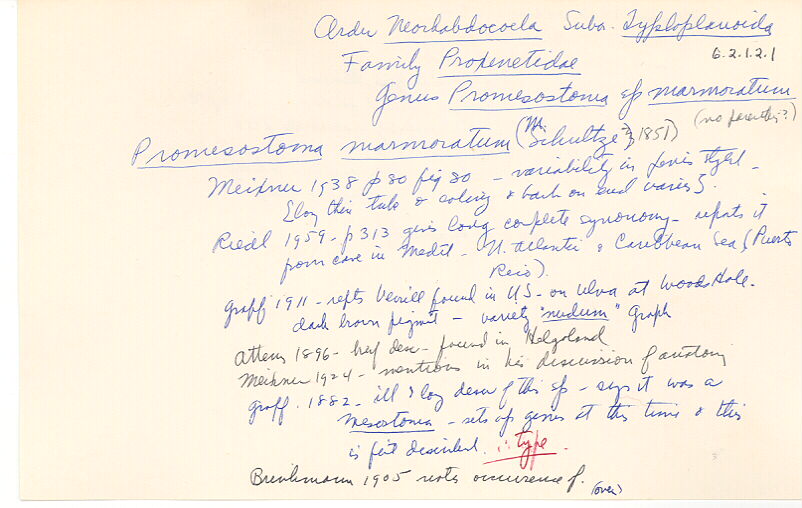 Order Neorhabdocoela Subo. Typhloplanoida
6.2.1.2.1
Family Proxenetidae
Genus Promesostoma sp marmoratum
(no parenths?)
Promesostoma marmoratum (M. Schultze, 1851)
Meixner 1938 p 80 fig 80 – variability in penis stylet –
long thin tube & coiling & barb on end varies.
Riedl 1959 – p 313 gives long complete synonomy – repts it
from cave in Medit – N. Atlantic & Caribbean Sea (Puerto
Rico).
Graff 1911 – repts Verrill found in U.S. – on Ulva at Woods Hole.
dark brown pigmt – variety "nudum" Graff
Attems 1896 – brief desc – found in Helgoland
Meixner 1924 – mentions in his discussion of anatomy
Graff. 1882 – ill & long descr of this sp – says it was a
Mesostoma – sets up genus at this time & this
is first described. ∴ type.
1905 – notes occurence of.
(over)